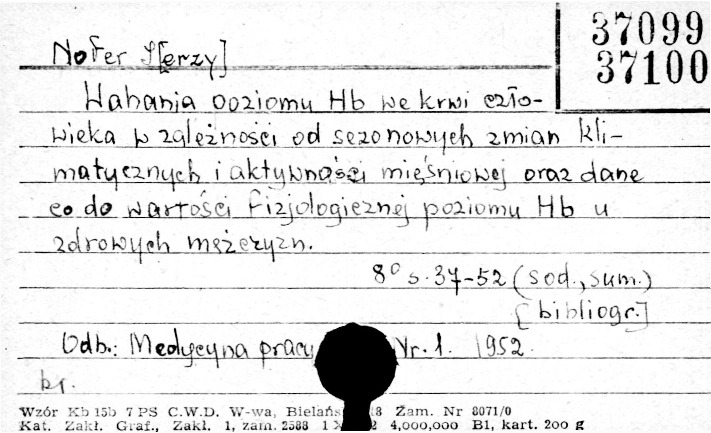 37099
37100
Nofer J[erzy]
Wahania poziomu Hb we krwi czło-
wieka w zależności od sezonowych zmian kli-
matycznych i aktywności mięśniowej oraz dane
co do wartości fizjologicznej poziomu Hb u
zdrowych mężczyzn.
8° s. 37-52 (sod., sum.)
[bibliogr.]
Odb.: Medycyna pracy Nr. 1. 1952.
kr.
Wzór Kb 15b 7 PS C.W.D. W-wa, Bielańs 8 Zam. Nr 8071/0
Kat. Zakł. Graf., Zakł. 1, zam. 2588 1 2 4,000,000 B1, kart. 200 g